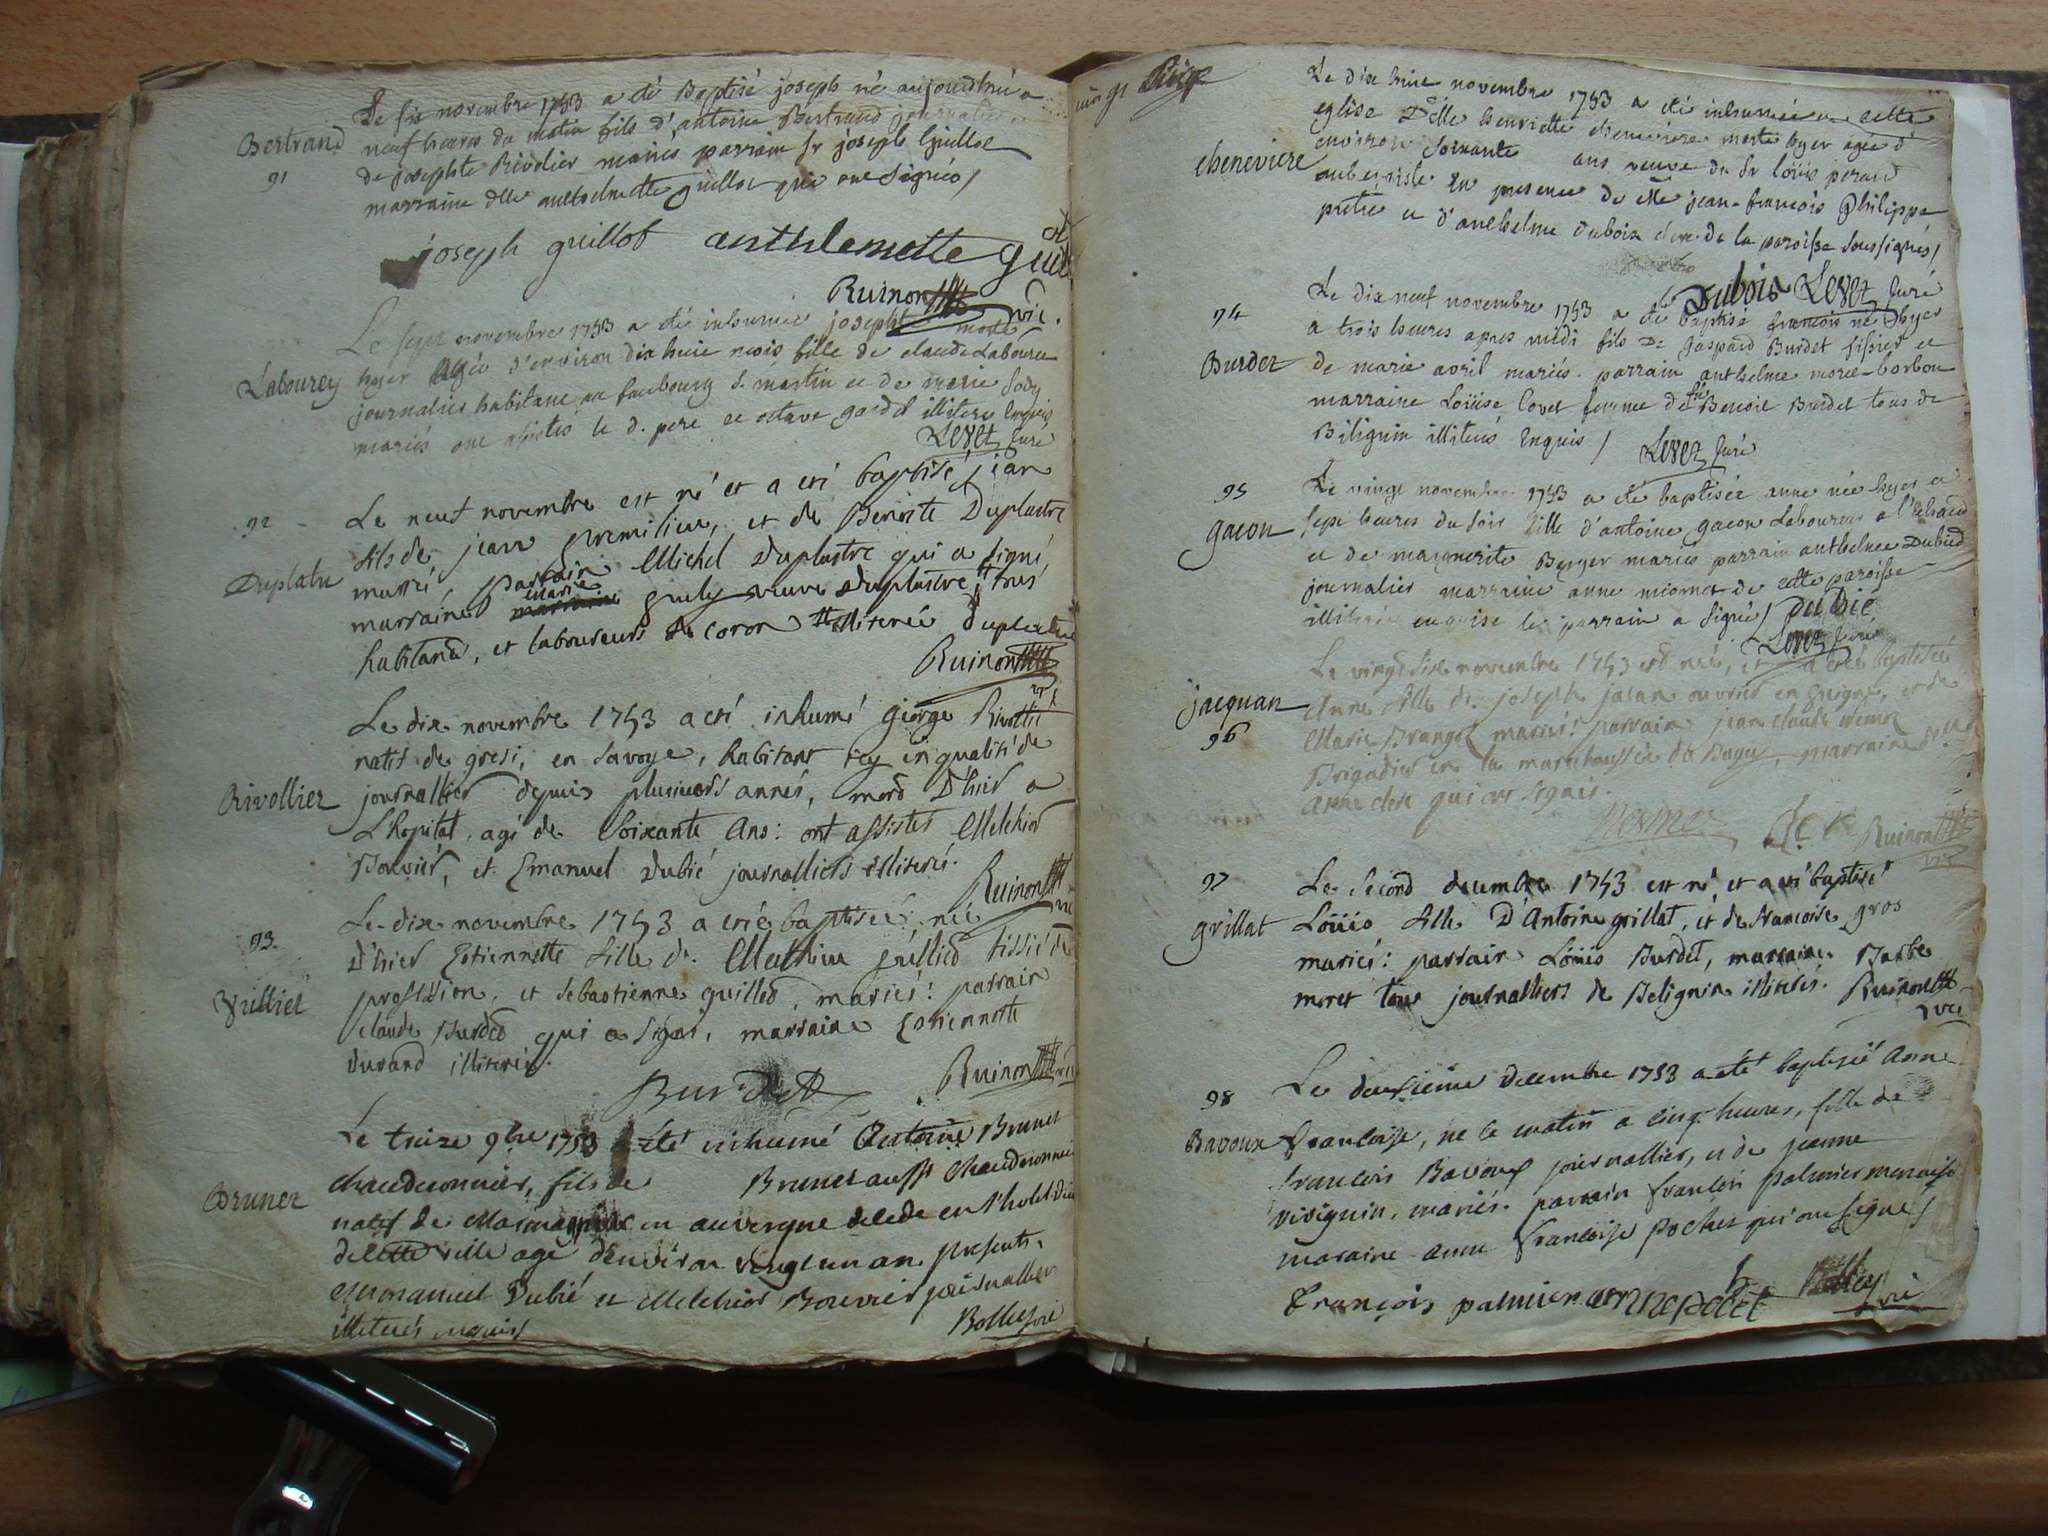 Bertrand
91
Le six novembre 1753 a été Baptisé joseph né aujourdhui a
neuf heures du matin fils d'antoine Bertrand journalier
de josephte Rivolier mariés parrain Sr joseph Guillot
marraine dlle anthelmette guillot qui ont signés /
joseph guillot anthlemette guillot
Ruinon vic.
Labourey
Le sept novembre 1753 a été inhumée josephte morte
hyer agée d'environ dix huit mois fille de claude Labourey
journalier habitant au faubourg S. martin et de marie
mariés ont assistés le d. pere et octave gardet illiteres enquis
Levet Curé
92
Duplatre
Le neuf novembre est né et a eté baptisé jean
fils de jean premilieu, et de Benoite Duplastre
mariés, parrain Michel Duplastre qui a signé,
marraine marie veuve Duplastre tous
habitans, et laboureurs de coron illiterée Duplastre
Ruinon
Rivollier
Le dix novembre 1753 a eté inhumé George Rivollier
natif de gresi, en savoye, habitant icy en qualité de
journallier depuis plusieurs annés, mort D'hier a
L'hopital, agé de soixante Ans: ont assistés Melchior
Bouvier, et Emanuel Dubié journalliers illiterés.
Ruinon vic
93.
Le dix novembre 1753 a etée baptisée, née
D'hier Estiennette fille de Mathieu tissier de
profession, et Sebastienne guilled, mariés: parrain
claude Burded qui a signé, marraine Estiennette
durand illiterée.
Burdet Ruinon vic
Brunet
Le treize 9bre 1753 a été inhumé Antoine Brunet
chauderonnier, fils de Brunet aussi chauderonnier
natif de en auvergne décédé en l'hotel-Dieu
de cette ville agé d'environ vingt un an. presents.
emmanuel Dubié et Melchior Bouvier journallier
illiterés enquis /
Chenevière
Le dix huit novembre 1753 a été inhumée en cette
eglise Delle henriette cheneviere morte hyer agée d'
environ soixante ans veuve du Sr loüis perard
aubergiste En presence de Me jean-françois Philippe
prêtre et d'anthelme dubois clerc de la paroisse soussignés /
Dubois Levet Curé
94
Burdet
Le dix neuf novembre 1753 a été baptisé françois né hyer
a trois heures apres midi fils De Gaspard Burdet tissier et
de marie avril mariés. parrain anthelme moret-borbon
marraine Loüise Covet femme de fû Benoit Burdet tous de
Bilignin illiterés Enquis / Levet Curé
95
Gacon
Le vingt novembre 1753 a été baptisée anne née hyer a
sept heures du soir fille d'antoine gacon Laboureur a
et de marguerite Berger mariés parrain anthelme Dubied
journalier marraine anne micornet de cette paroisse
illiterée enquise le parrain a signé / Dubié
Levet Curé
jacquan
96
Le vingt six novembre 1753 est née, et a été baptisée
Anne fille de joseph jacan ouvrier en
Marie Brangel mariés: parrain jean claude
Brigadier en la marechaussée de Bugey, marraine
Anne clerc qui ont signés.
Ruinon vic
97
grillat
Le second decembre 1753 est né et a eté baptisé
Loüis fills D'Antoine grillat, et de francoise gros
mariés: parrain Loüis Burdet, marraine Barbe
moret tous journalliers de Belignin illiterés. Ruinon
vic
98
Bavoux
Le deuxieme decembre 1753 a été baptisé Anne
francoise, né le matin a cinq heures, fille de
francois Bavoux journallier, et de jeanne
vivignin, mariés. parrain francois palmier menuisier
maraine anne francoise pochet qui ont signé /
François palmier anne pochet